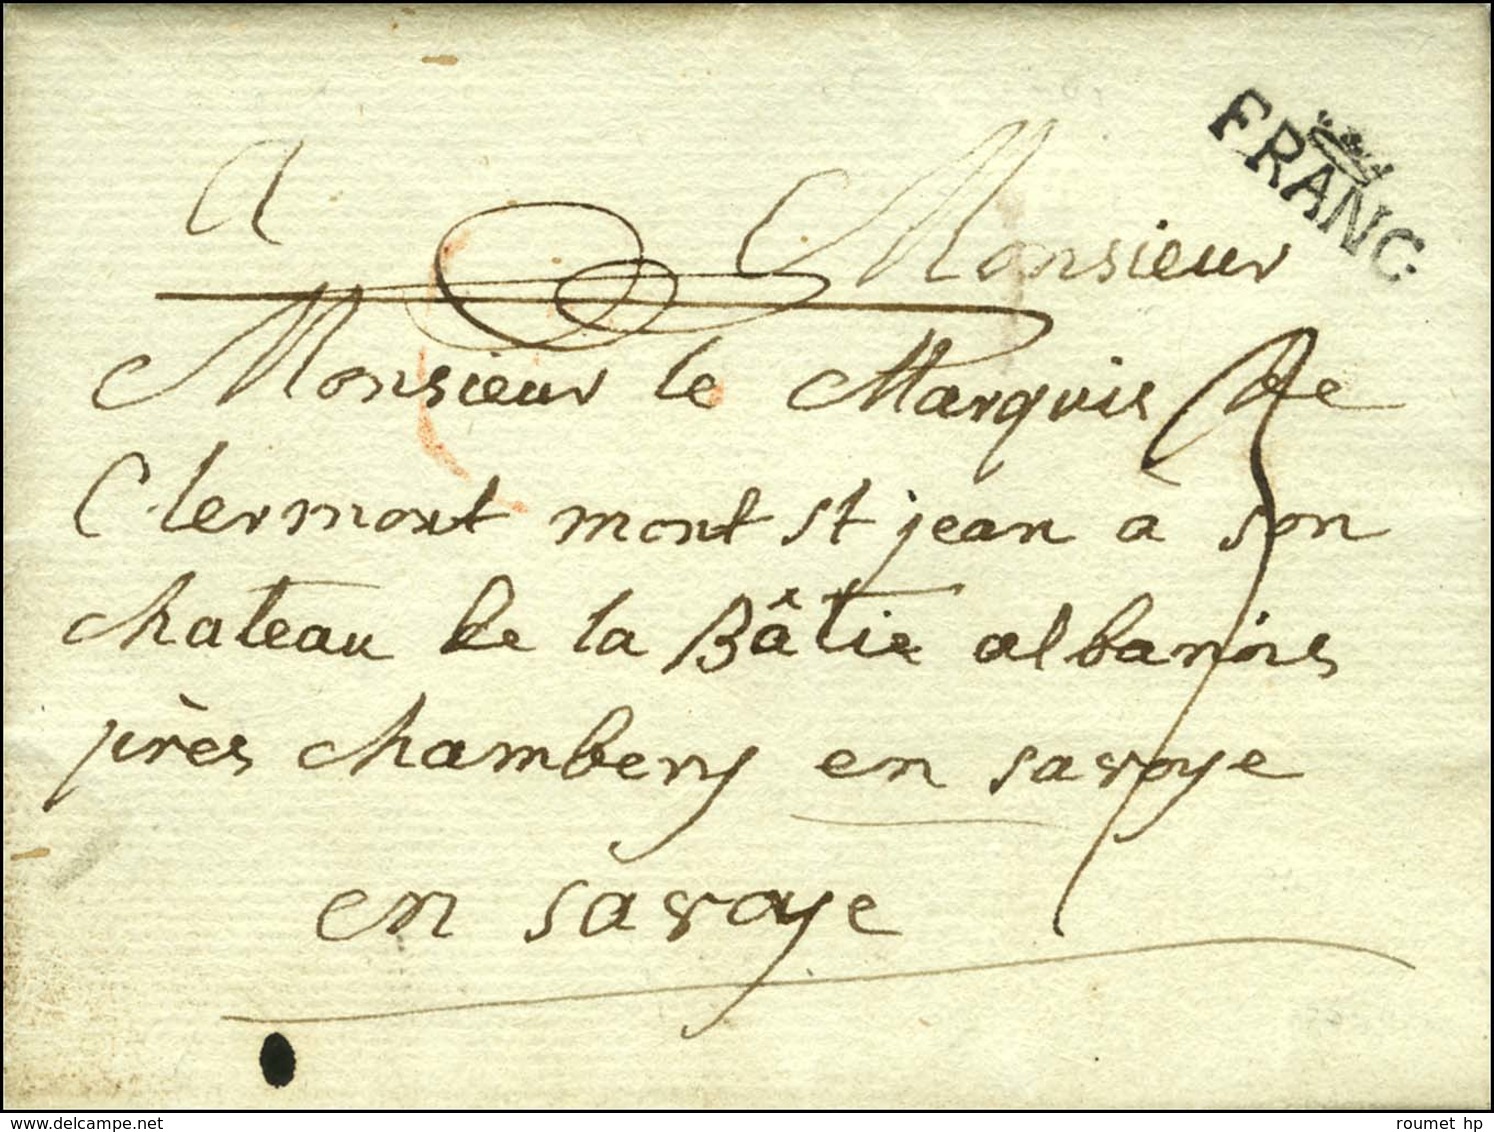 FRANC
A Monsieur
Monsieur le Marquis de
Clermont mont st jean a son
chateau de la Bâtie albanois
près chambery en savoye
en savoye
delcampe.net
roumet hp